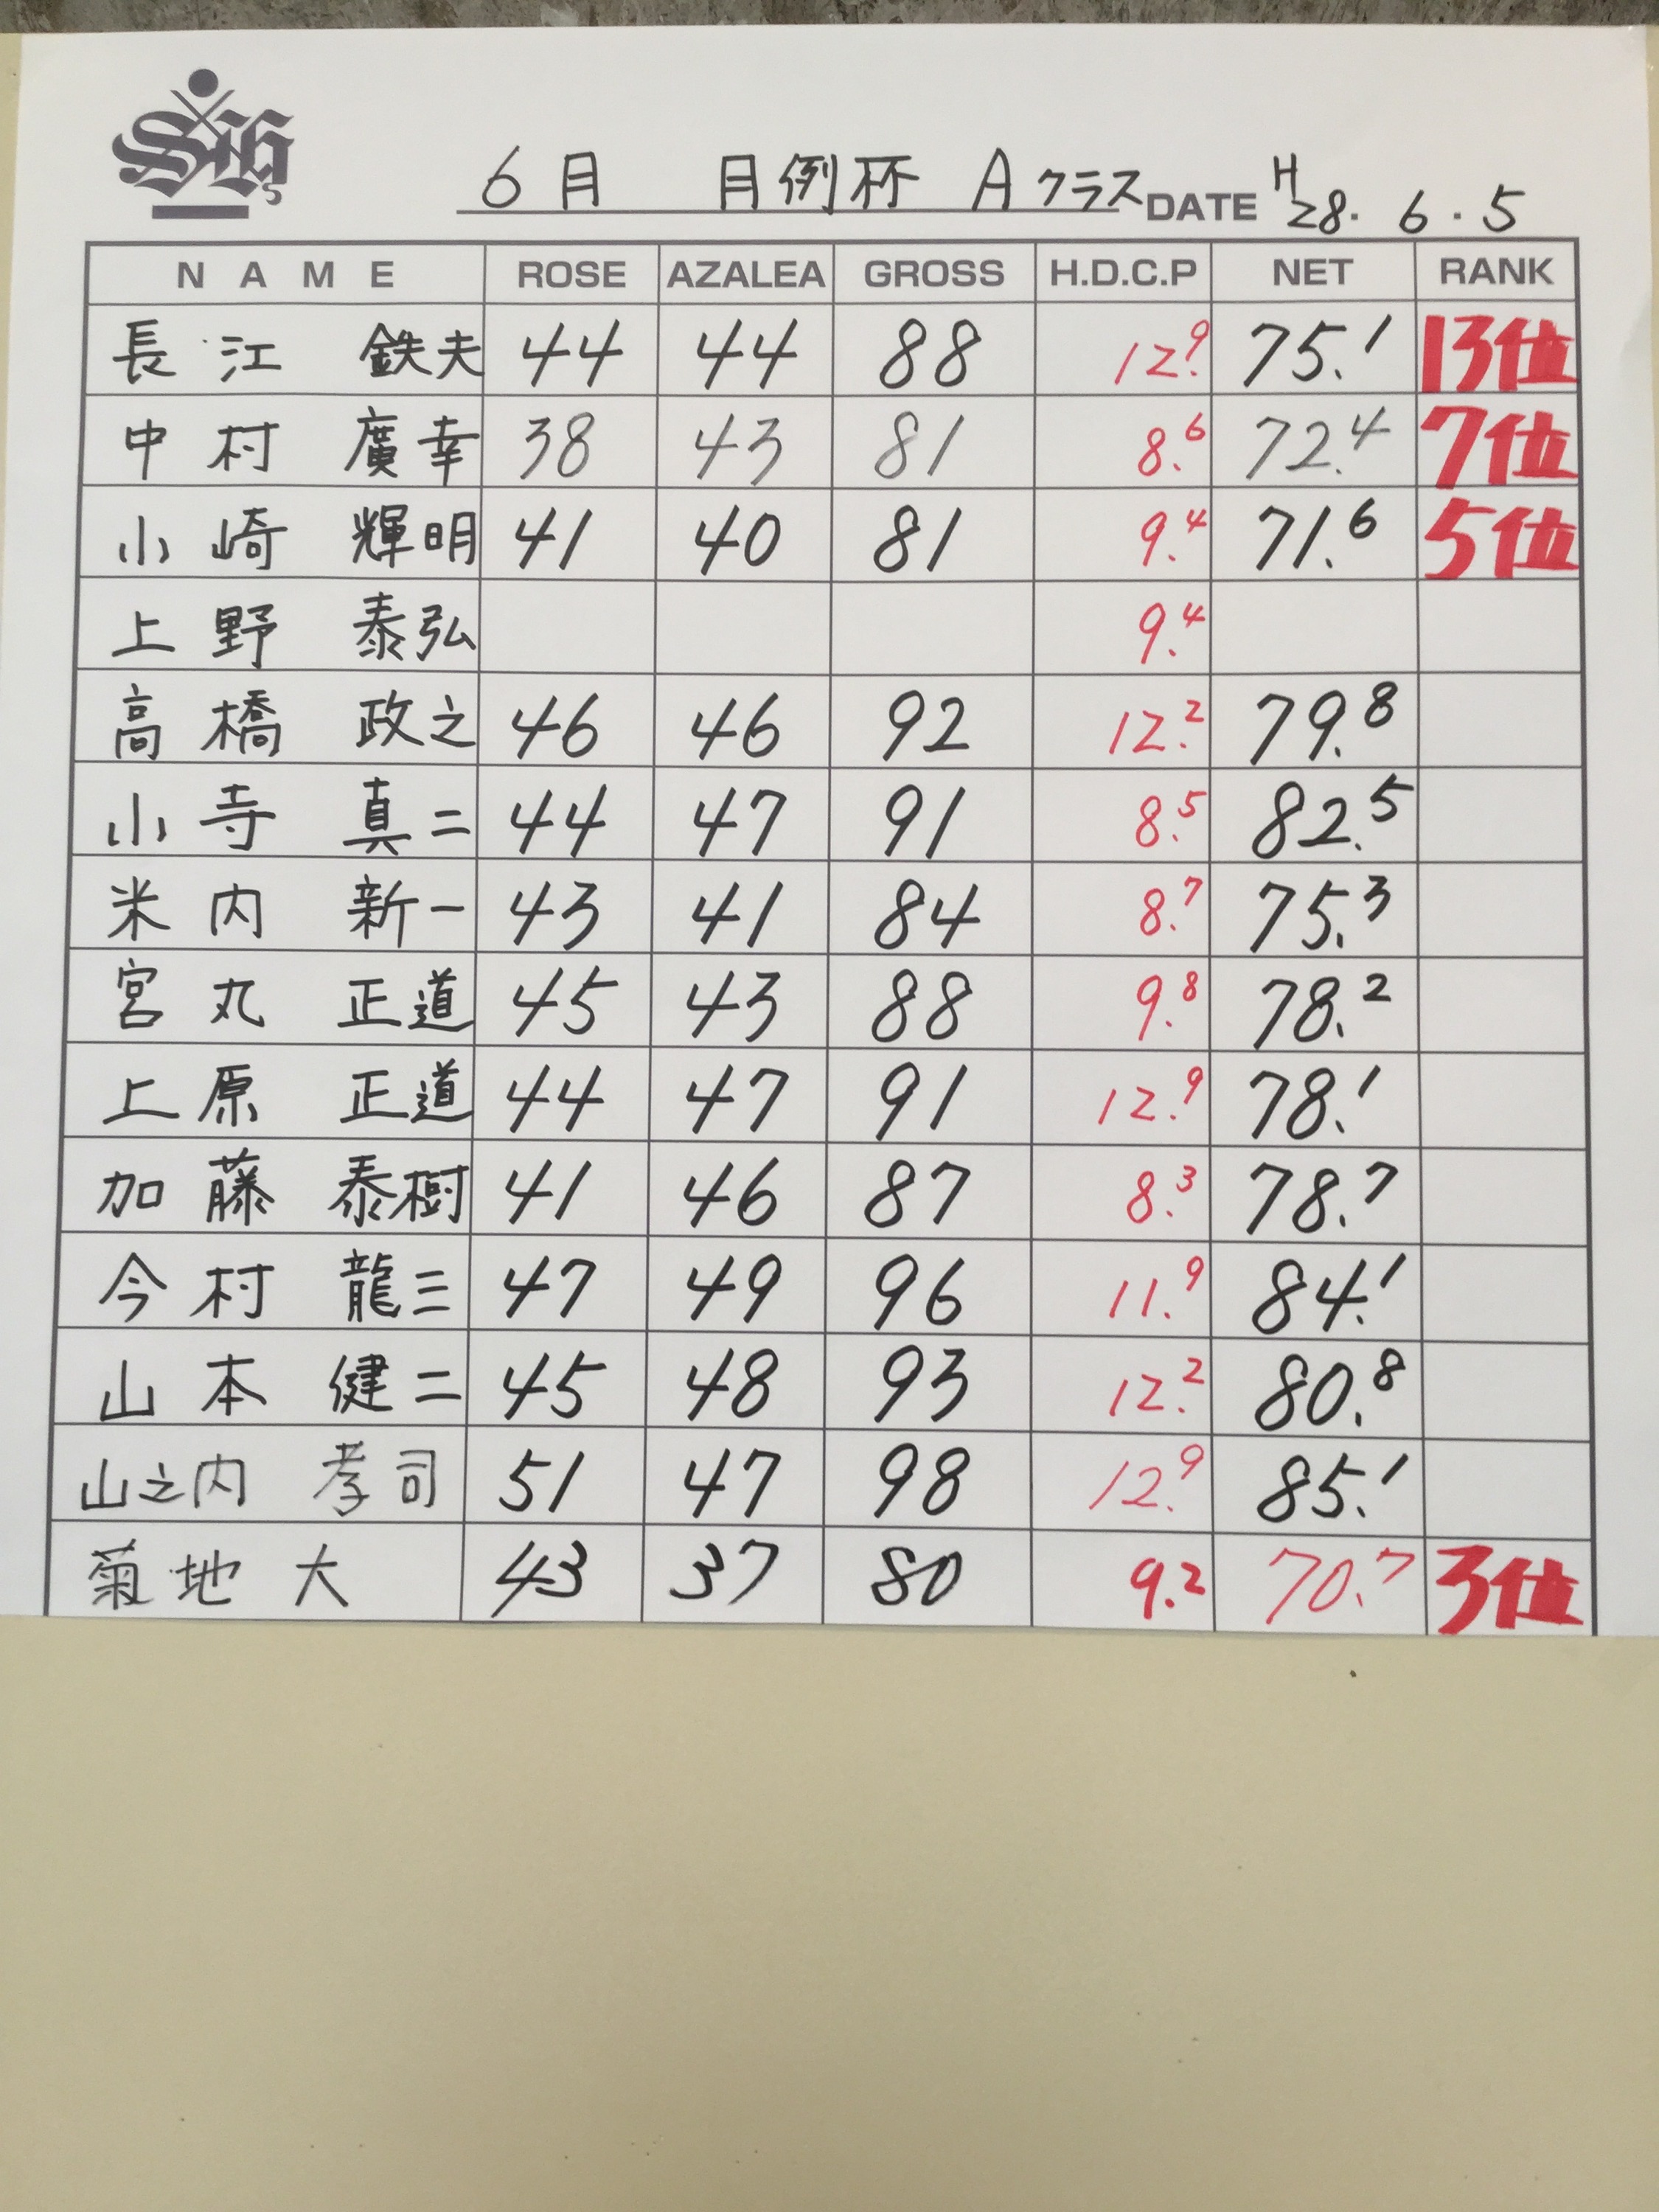 6月 月例杯 Aクラス DATE H28.6.5
NAME ROSE AZALEA GROSS H.D.C.P NET RANK
長江 鉄夫 44 44 88 12.9 75.1 13位
中村 廣幸 38 43 81 8.6 72.4 7位
小崎 輝明 41 40 81 9.4 71.6 5位
上野 泰弘 9.4
高橋 政之 46 46 92 12.2 79.8
小寺 真二 44 47 91 8.5 82.5
米内 新一 43 41 84 8.7 75.3
宮丸 正道 45 43 88 9.8 78.2
上原 正道 44 47 91 12.9 78.1
加藤 泰樹 41 46 87 8.3 78.7
今村 龍三 47 49 96 11.9 84.1
山本 健二 45 48 93 12.2 80.8
山之内 孝司 51 47 98 12.9 85.1
菊地 大 43 37 80 9.2 70.7 3位